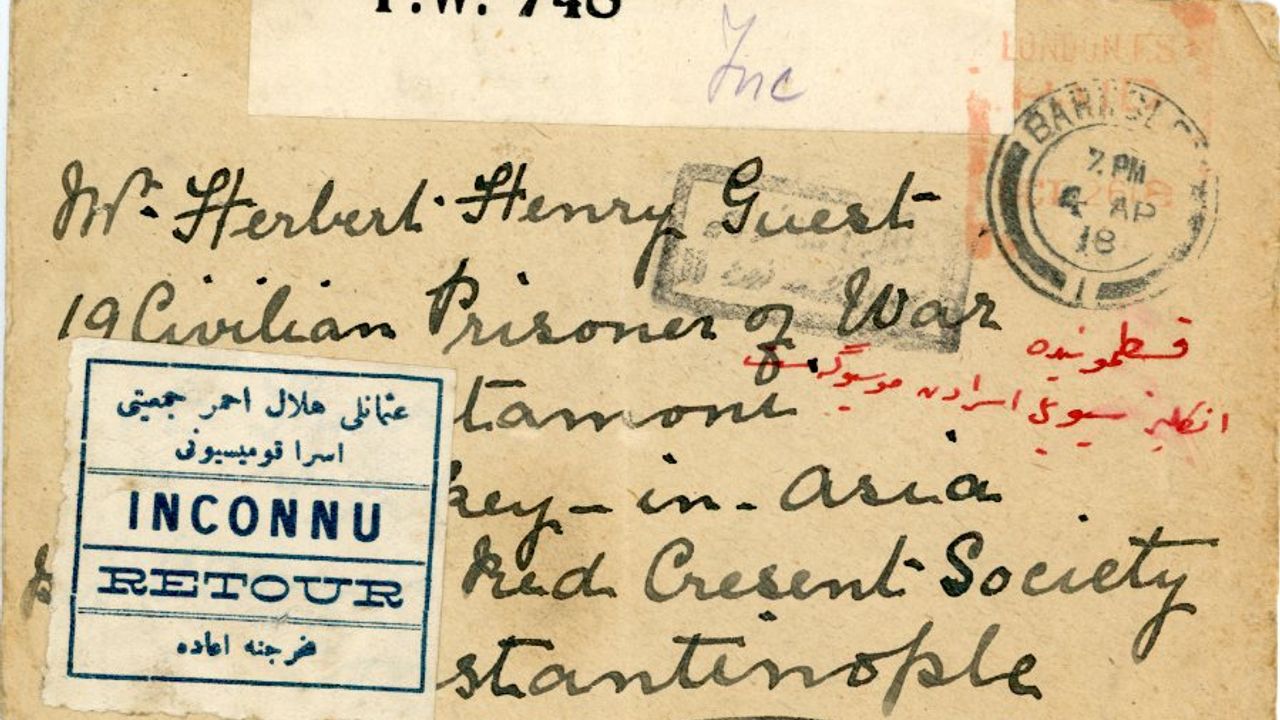 P.W. 748
Inc
LONDON F.S.
BARNSLE
7 PM
4 AP
18
1
Mr. Herbert Henry Guest
19 Civilian Prisoner of War
tamoni
key-in-Asia
Red Cresent Society
stantinople
قسطمونیده
انكلیز سیویل اسرادن موسیو گست
عثمانلی هلال احمر جمعیتی
اسرا قومیسیونی
INCONNU
RETOUR
مخرجنه اعاده